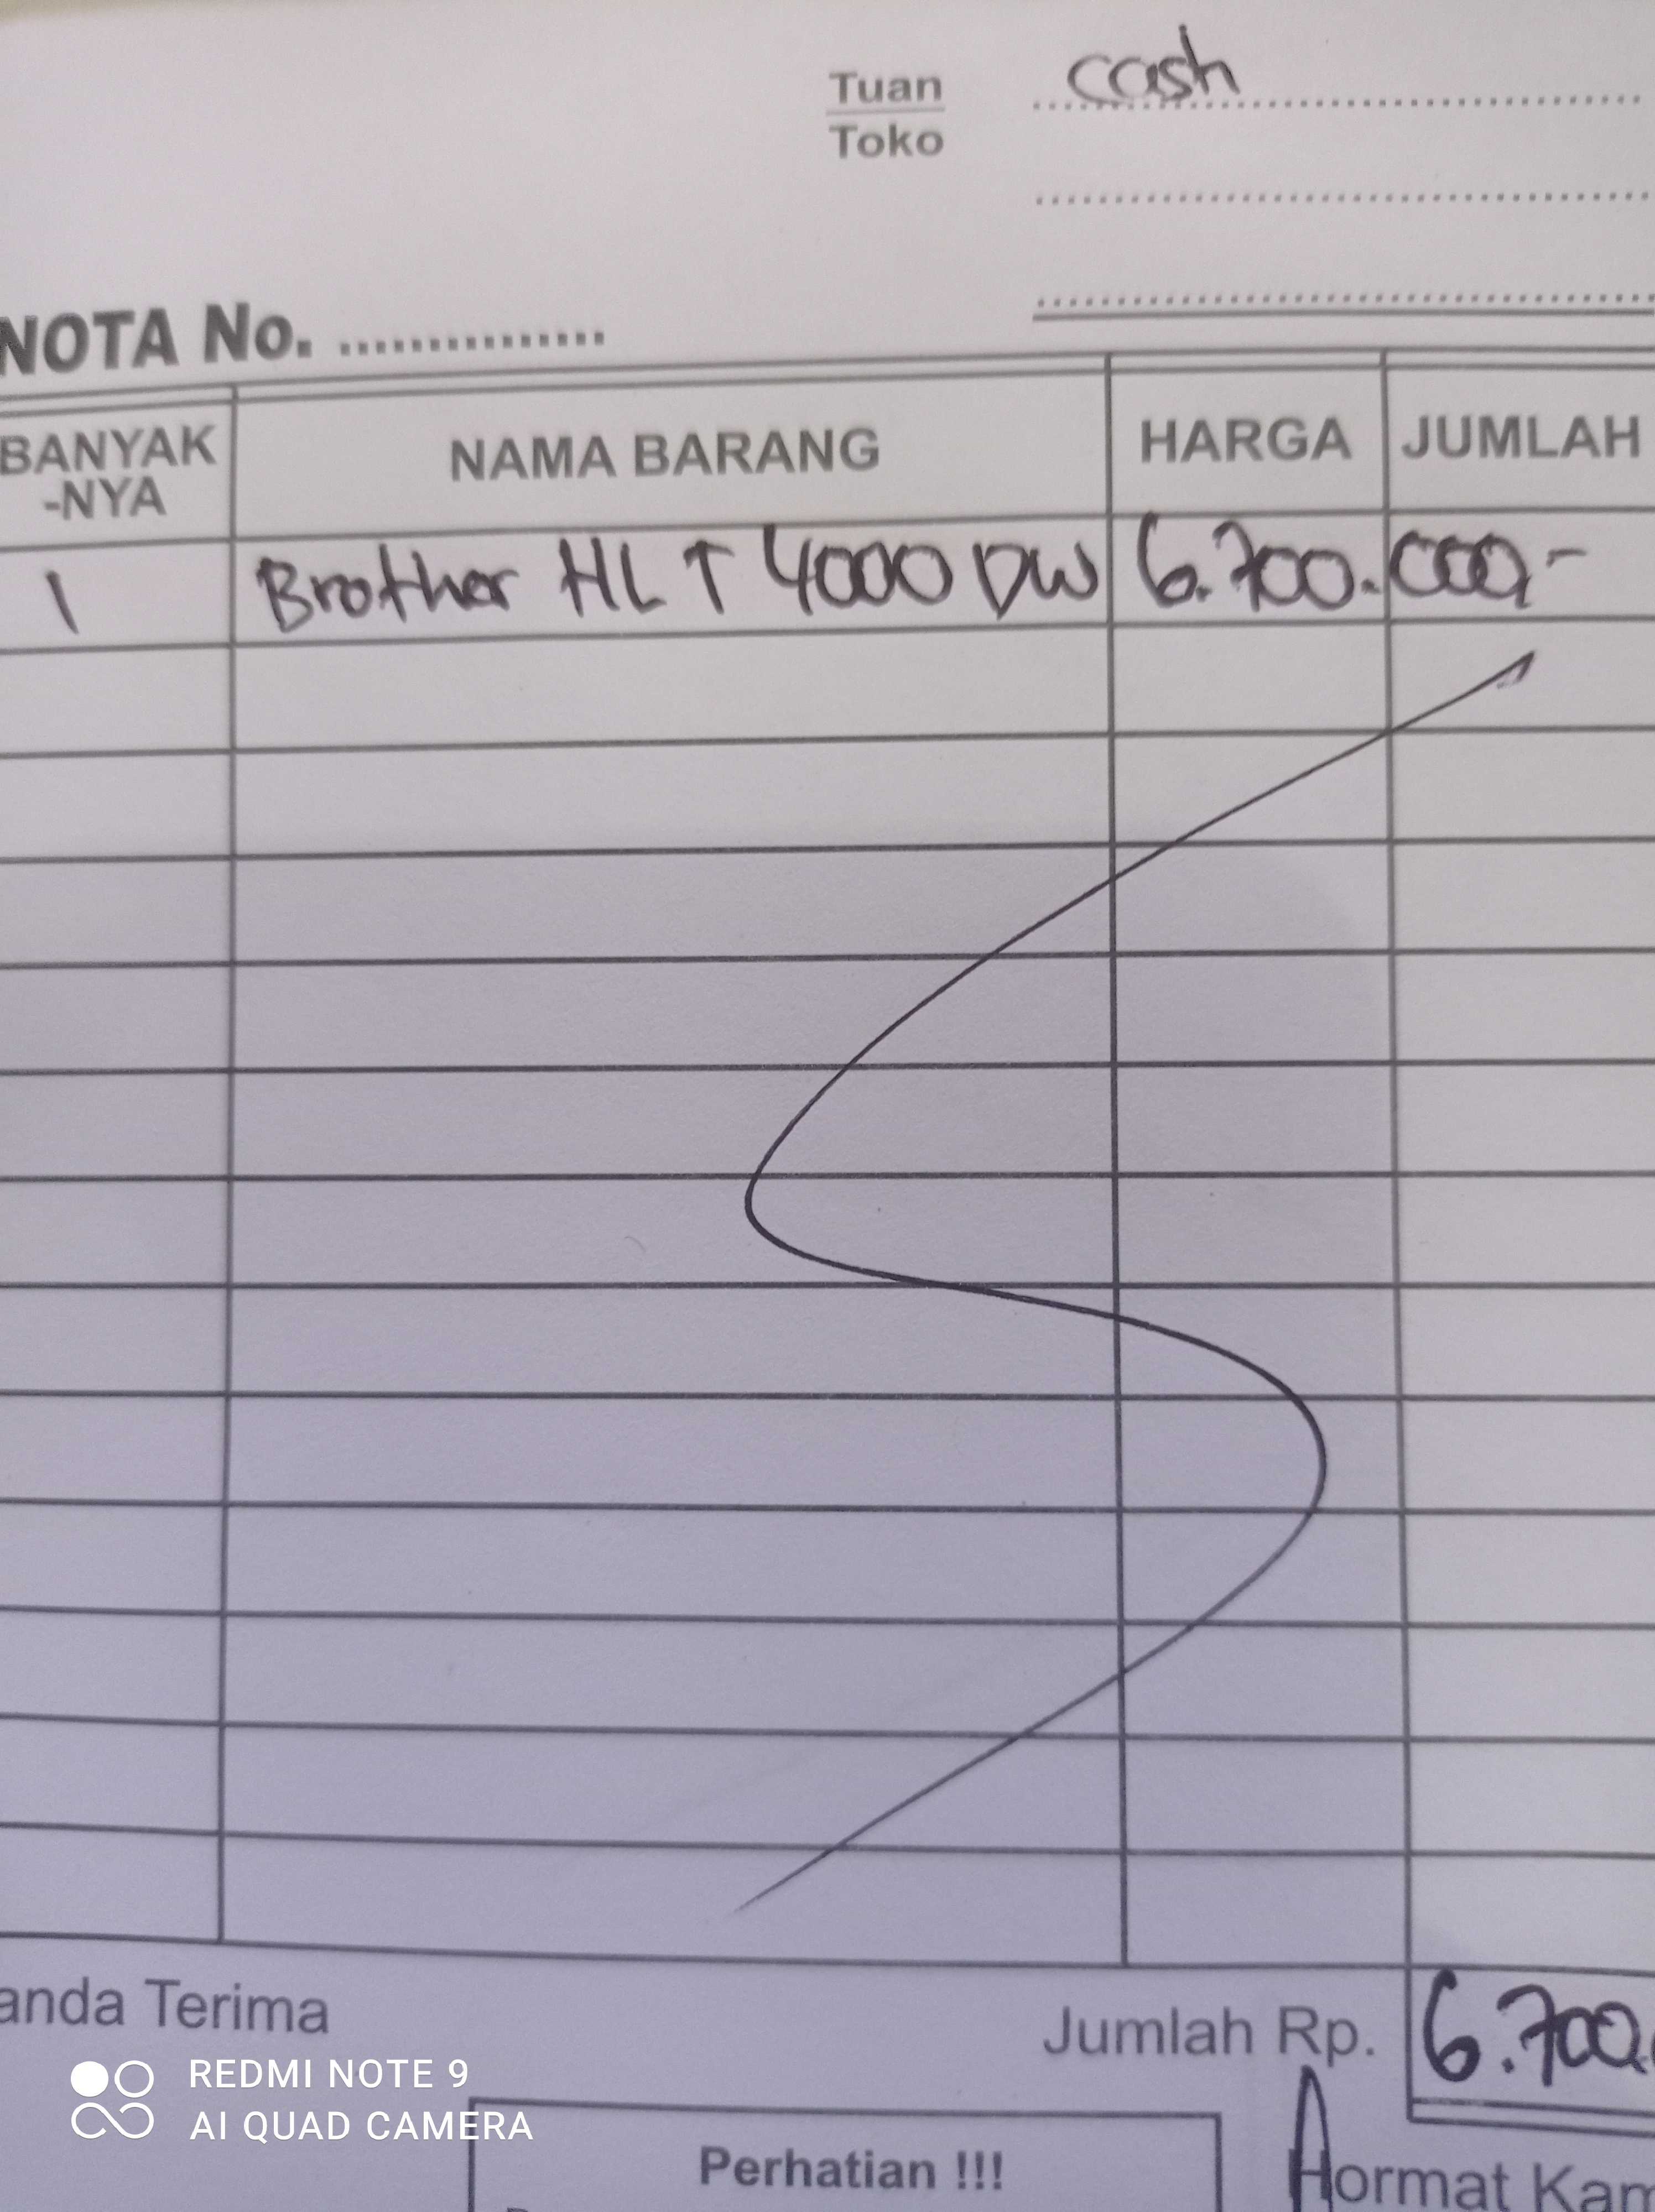 Tuan cash
Toko
NOTA No. ...............
BANYAK
-NYA
NAMA BARANG HARGA JUMLAH
1 Brother HL T 4000 DW 6.700.000,-
anda Terima
Jumlah Rp. 6.700.
REDMI NOTE 9
AI QUAD CAMERA
Perhatian !!!
Hormat Kam